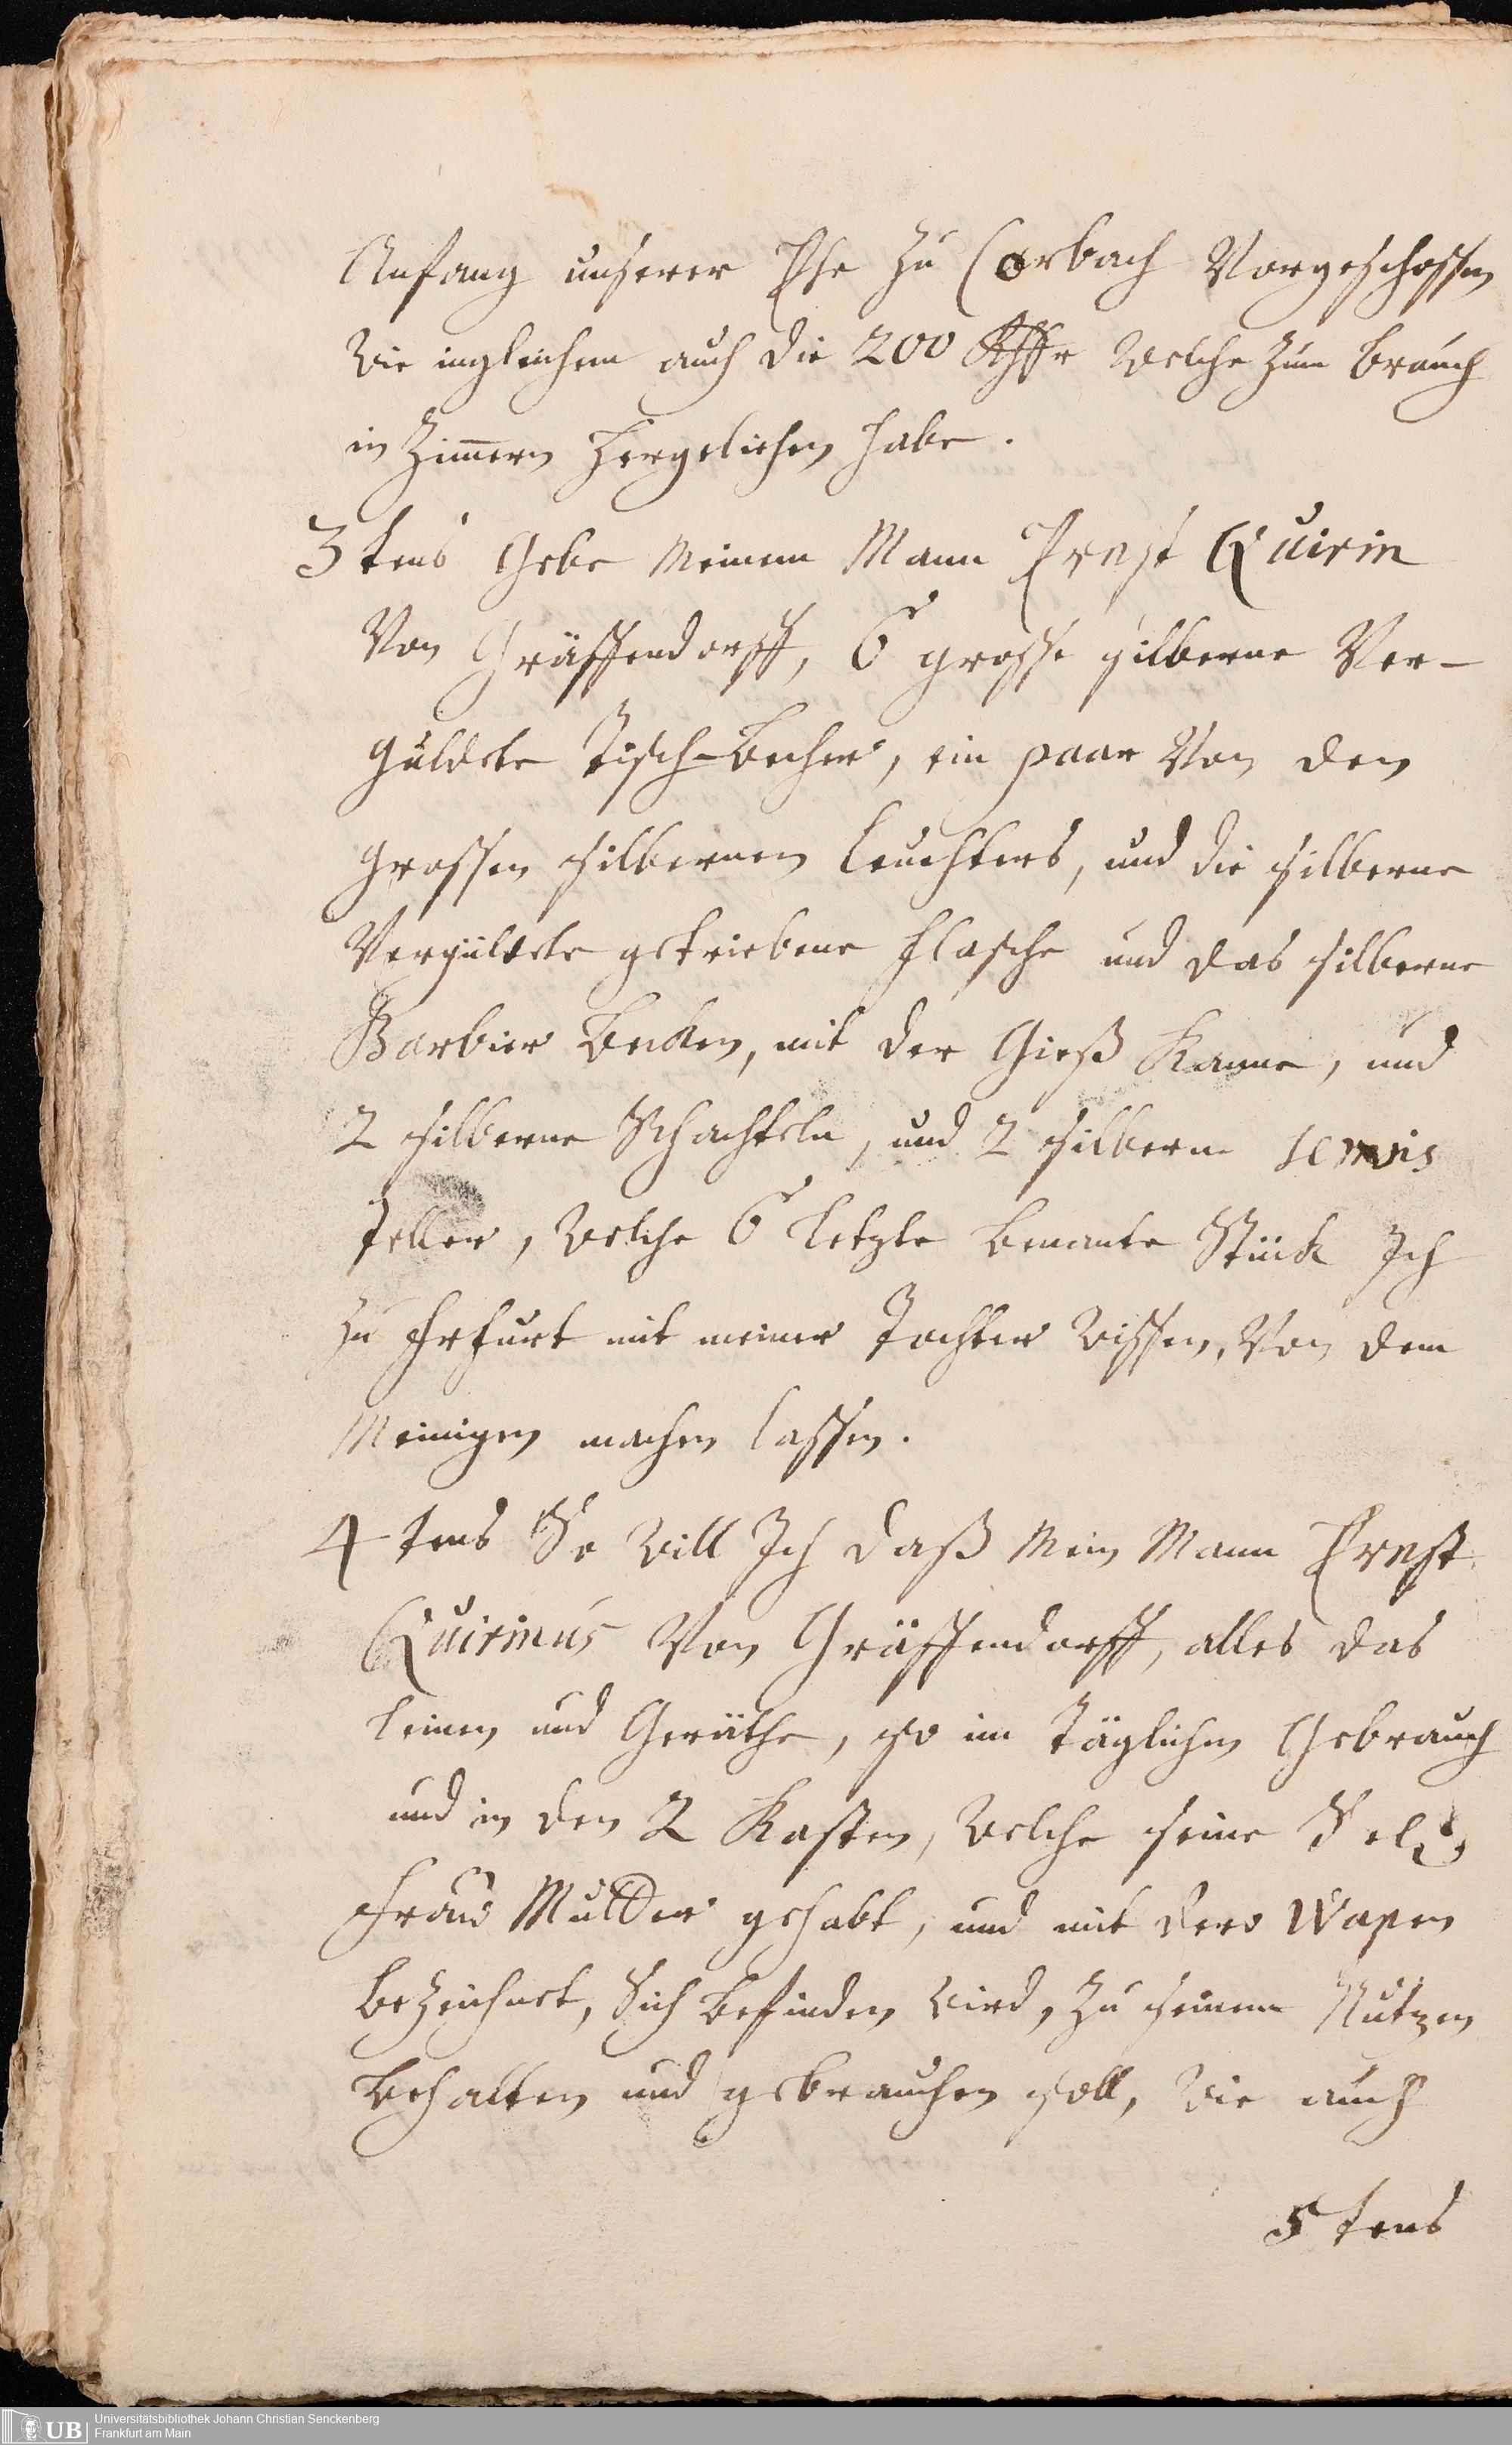 Anfang unserer Ehe zu Corbach Vorgeschossen
wie ingleichem auch die 200 Rthlr welche zum brauch
in Zim̅ern hergeliehen habe.
3 tens Gebe Meinem Mann Ernst Quirin
Von Gräffendorff, 6 grosse silberne Ver-
guldete Tisch-Becher, ein paar Von den
grossen silbernen Leuchters, und die silberne
Vergüldete getriebene Flasche und das silberne
Barbier Becken, mit der Gieß Kanne, und
2 silberne Schachteln, und 2 silberne servis
Teller, welche 6 letzte benante Stück Ich
zu Erfurt mit meiner Tochter wissen, Von dem
Meinigen machen lassen.
4 tens So will Ich daß Mein Mann Ernst
Quirinus Von Gräffendorff, alles das
Leinen und Geräthe, so im Täglichen Gebrauch
und in den 2 Kasten, welche seine Sel.
Frau Mutter gehabt, und mit dero Wapen
bezeichnet, Sich befinden wird, zu seinem Nutzen
behalten und gebrauchen soll, wie auch
5 tens
Universitätsbibliothek Johann Christian Senckenberg
UB Frankfurt am Main